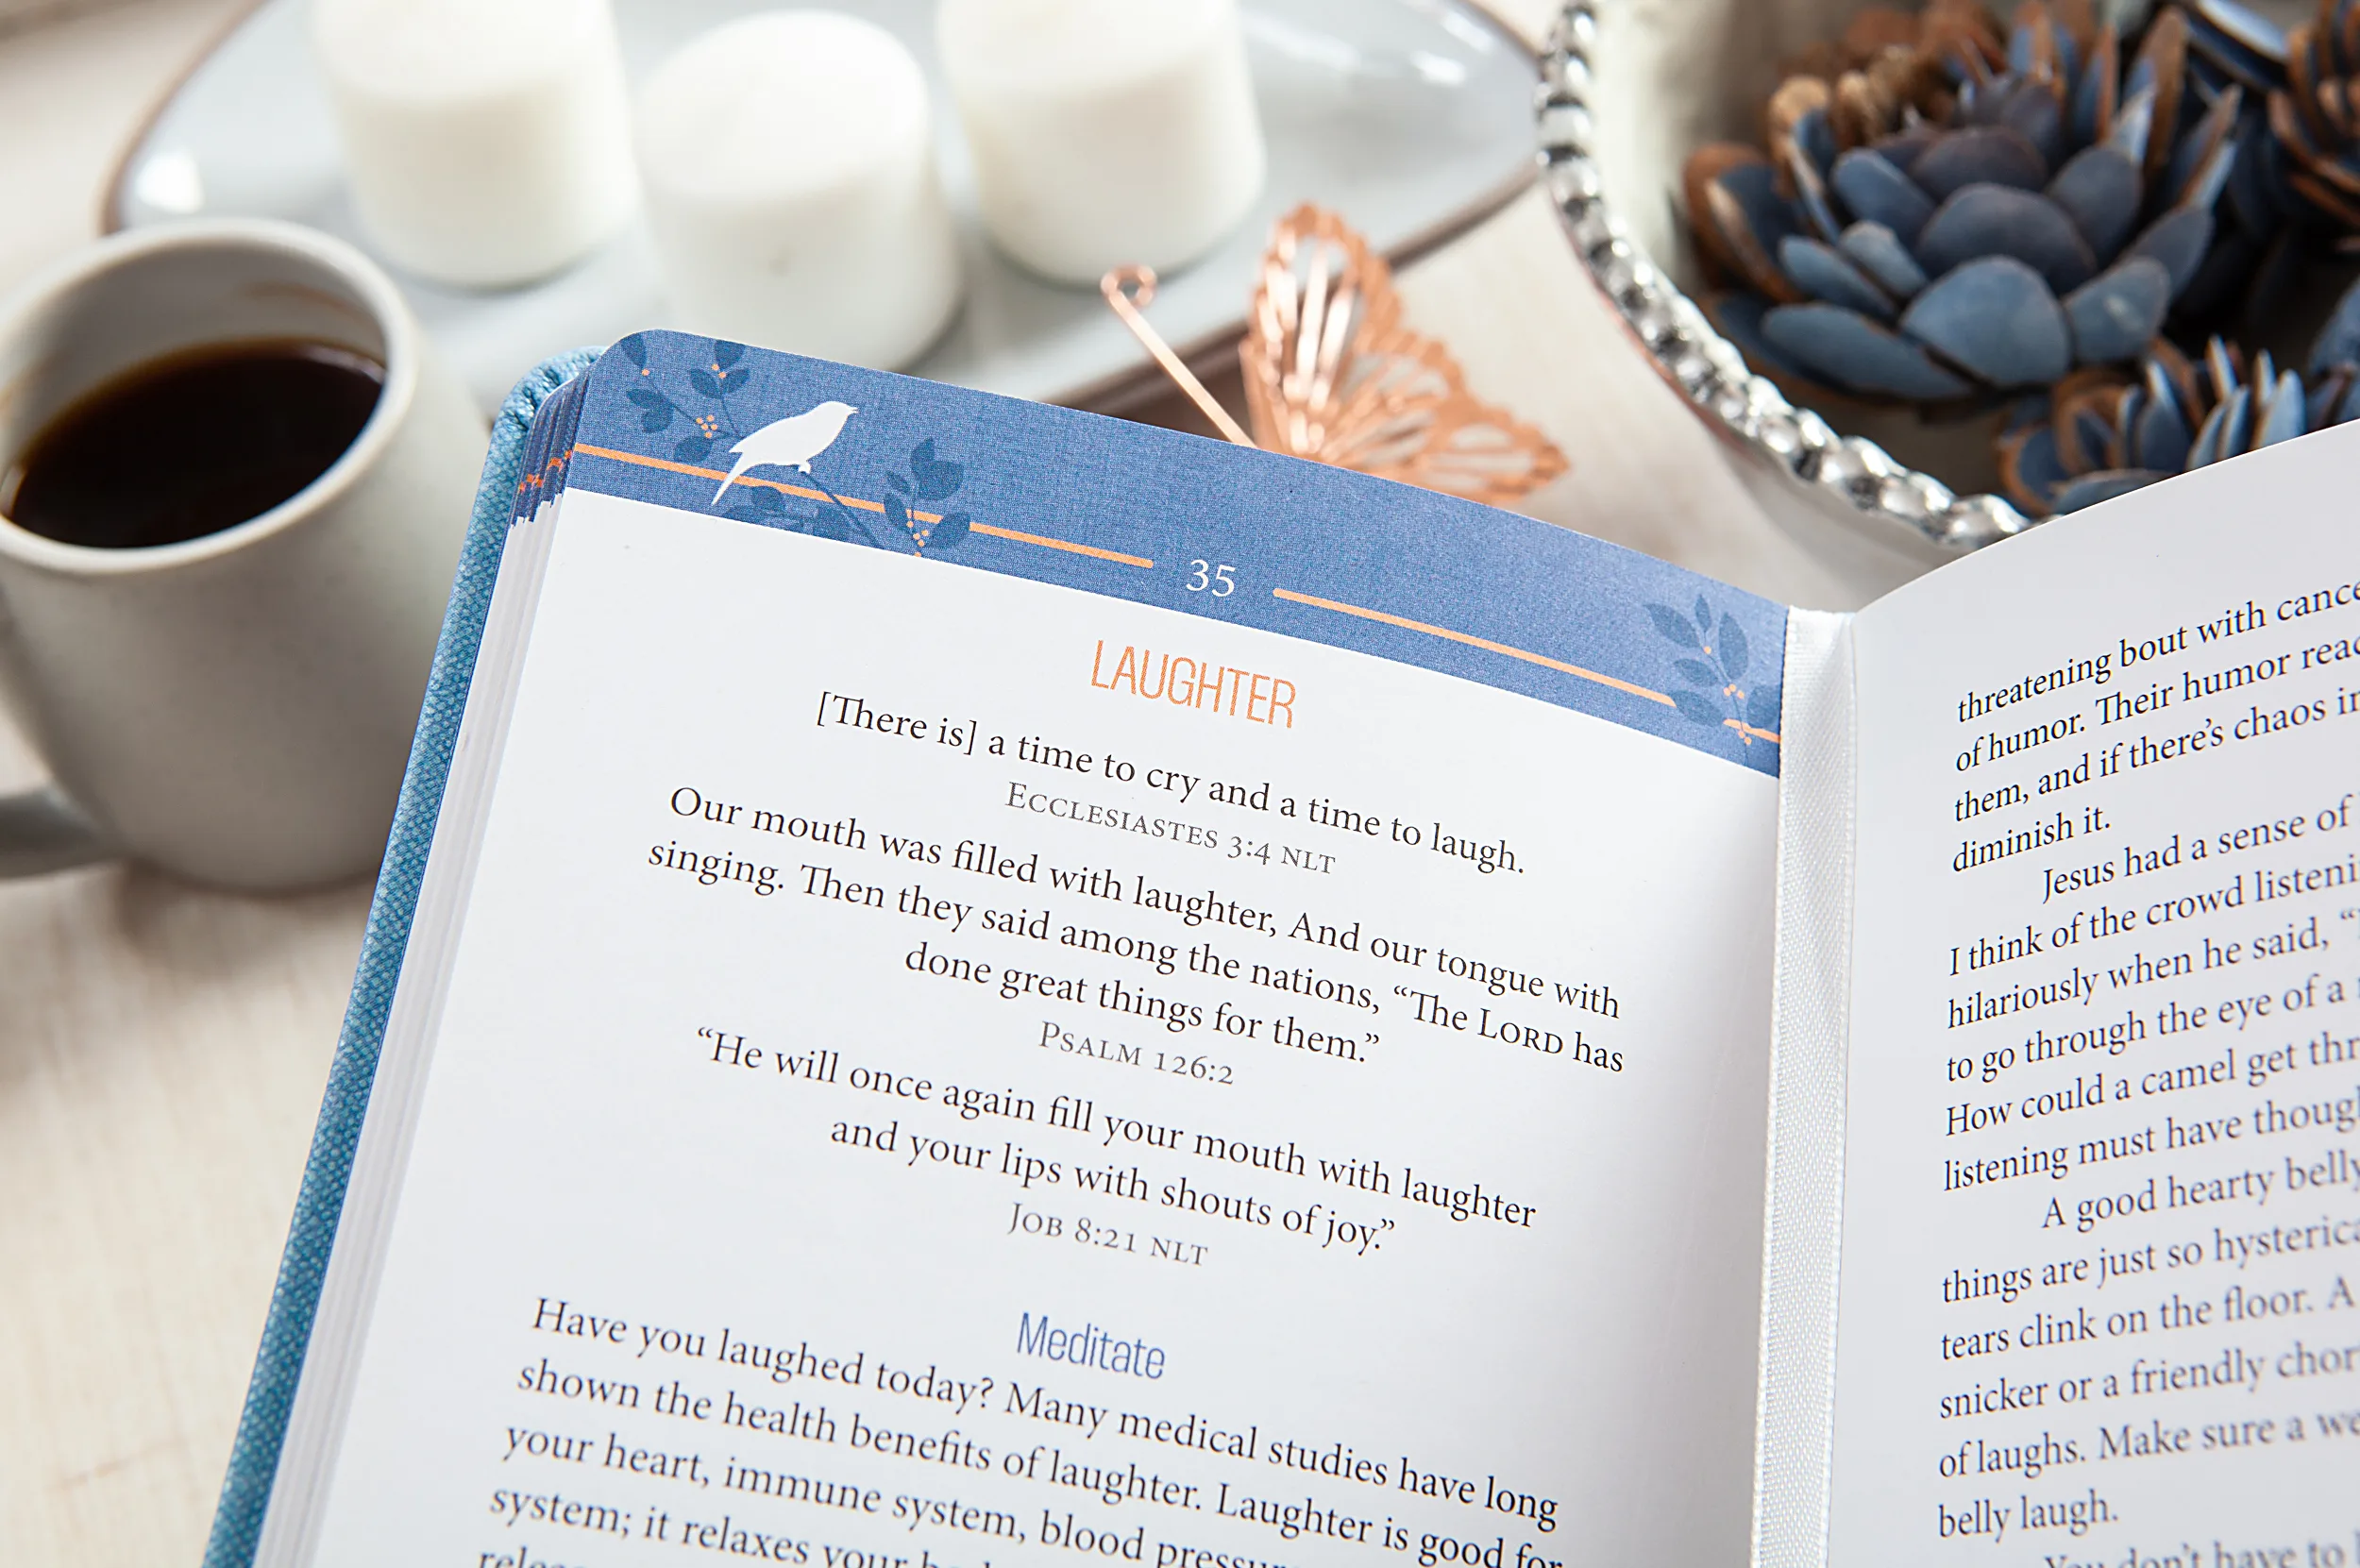 35
LAUGHTER
[There is] a time to cry and a time to laugh.
ECCLESIASTES 3:4 NLT
Our mouth was filled with laughter, And our tongue with
singing. Then they said among the nations, “The LORD has
done great things for them.”
PSALM 126:2
“He will once again fill your mouth with laughter
and your lips with shouts of joy.”
JOB 8:21 NLT
Meditate
Have you laughed today? Many medical studies have long
shown the health benefits of laughter. Laughter is good for
your heart, immune system, blood
system; it relaxes your
threatening bout with
of humor. Their humor
them, and if there’s chaos
diminish it.
Jesus had a sense of
I think of the crowd
hilariously when he said,
to go through the eye of a
How could a camel get
listening must have
A good hearty
things are just so
tears clink on the floor. A
snicker or a friendly
of laughs. Make sure a
belly laugh.
You don’t have to